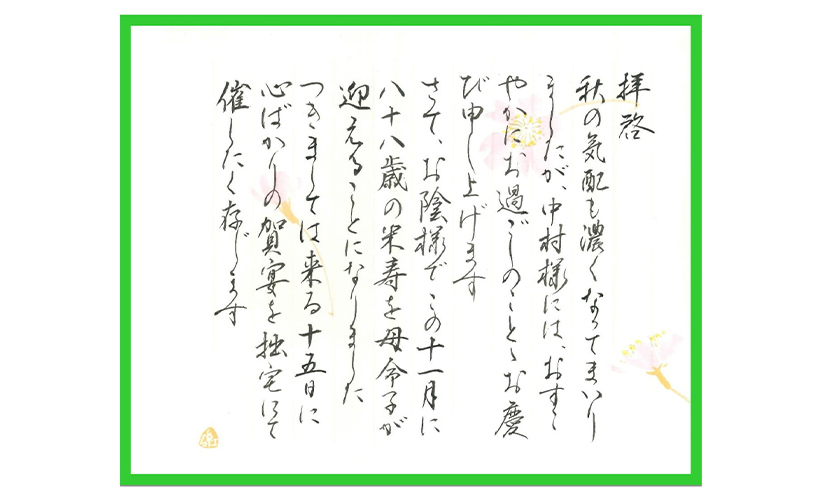 拝啓
秋の気配も濃くなってまいり
ましたが、中村様には、おすこ
やかにお過ごしのことゝお慶
び申し上げます
さて、お陰様でこの十一月に
八十八歳の米寿を母令子が
迎えることになりました
つきましては来る十五日に
心ばかりの賀宴を拙宅にて
催したく存じます